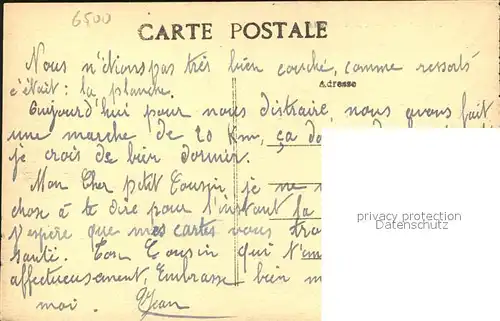 6500
CARTE POSTALE
Nous n'étions pas très bien couché, comme ressorts
Adresse
c'était : la planche.
Aujourd'hui pour nous distraire, nous avons fait
une marche de 20 Km, ça
je crois de bien dormir.
Mon Cher ptit Cousin je ne
chose à te dire pour l'instant
privacy protection
Datenschutz
J'espère que mes cartes vous
santé. Ton Cousin qui
affectueusement, Embrasse bien
moi. Jean